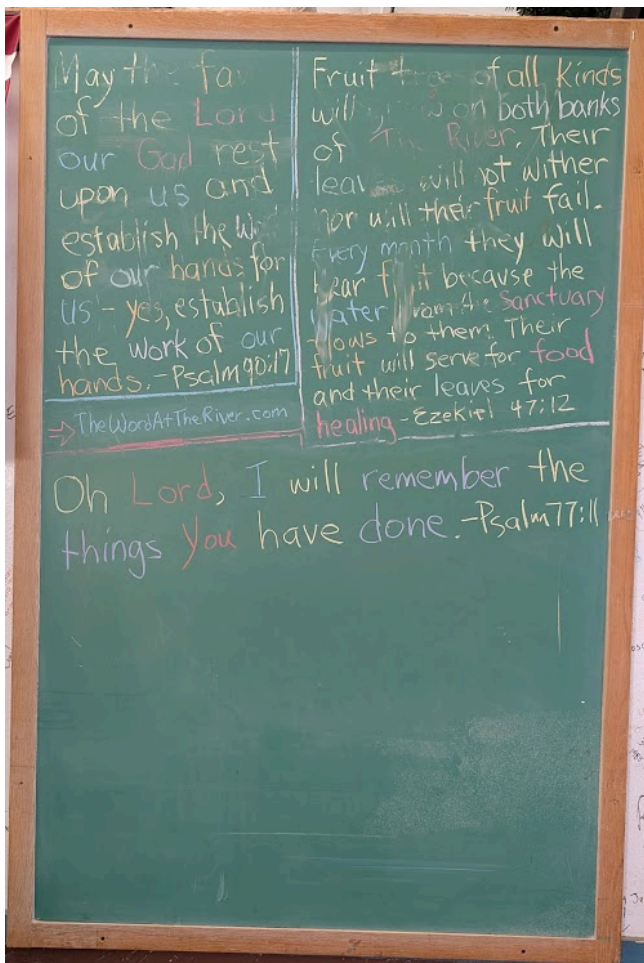 May the fa
of the Lord
our God rest
upon us and
establish the
of our hands for
us - yes, establish
the work of our
hands. - Psalm 90:17
⇒ TheWordAtTheRiver.com
Fruit of all Kinds
will on both banks
of The River. Their
will not wither
nor will their fruit fail.
Every month they will
bear because the
water from the Sanctuary
flows to them. Their
fruit will serve for food
and their leaves for
healing - Ezekiel 47:12
Oh Lord, I will remember the
things You have done. - Psalm 77:11